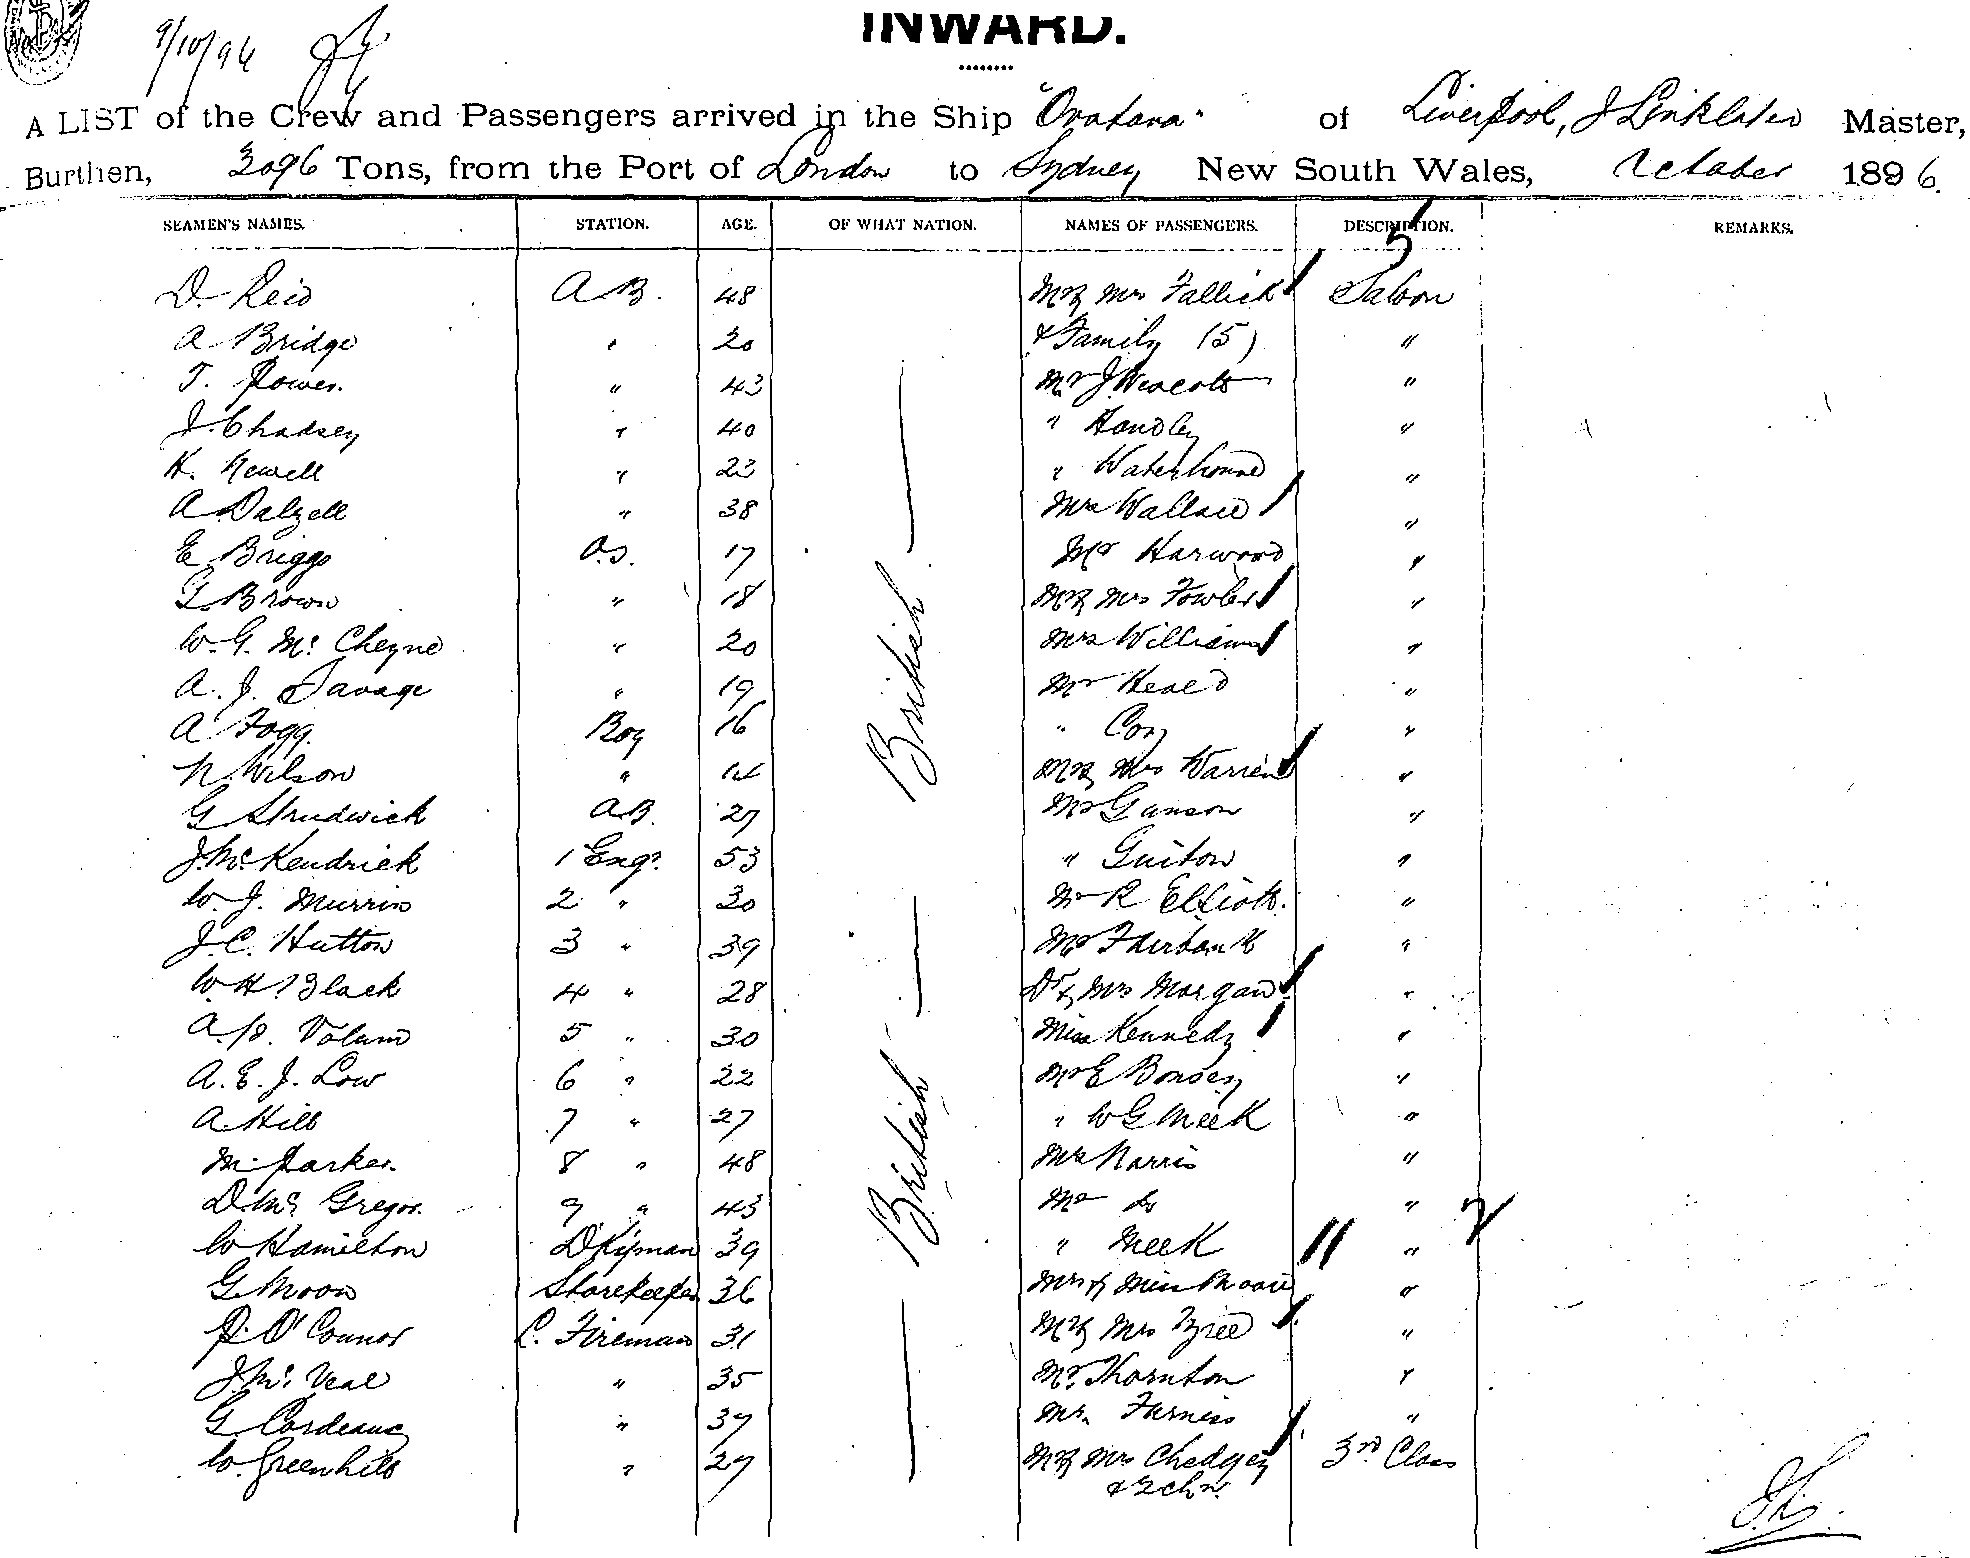 9/10/96
INWARD.
A LIST of the Crew and Passengers arrived in the Ship "Orotava" of Liverpool, J Linklater Master,
Burthen, 3096 Tons, from the Port of London to Sydney New South Wales, October 1896.
SEAMEN'S NAMES. STATION. AGE. OF WHAT NATION. NAMES OF PASSENGERS. DESCRIPTION. REMARKS.
5
D. Reid A B. 48 Mr & Mrs Fallick Saloon
A Bridge " 20 & Family (5) "
T. Power. " 43 Mr J Weacott "
J. Chadsey " 40 " Handley "
H. Newell " 23 " Waterhouse "
A Dalzell " 38 Mrs Wallace "
E Briggs O.S. 17 Mr Harwood "
G Brown " 18 Mr & Mrs Fowler "
W. G. Mc Cheyne " 20 Mrs Williams "
A. J. Savage " 19 Mr Heald "
British
A Fogg. Boy 16 " Cox "
N. Wilson " 14 Mr & Mrs Warren "
G Strudwick AB. 27 Mr Ganson "
J. Mc Kendrick 1 Engr. 53 " Guiton "
W. J. Murrin 2 " 30 Mr R Elliott. "
J. C. Hutton 3 " 39 Mr Fairbank "
W. H. Black 4 " 28 Dr & Mrs Morgan "
A. P. Volum 5 " 30 Miss Kennedy "
A. E. J. Low 6 " 22 Mr E Bonsey "
A. Hill 7 " 27 " W G Meek "
British
M. Parker. 8 " 48 Mrs Norris "
D. Mc Gregor. 9 " 43 Mr do " 2
W Hamilton Dkyman 39 " Meek "
G. Moon Storekeeper 36 Mrs & Miss Moore "
P. O'Connor L. Fireman 31 Mr & Mrs Bree "
J. Mc. Veal " 35 Mr. Thornton "
G Cordeaux " 37 Mr. Furniss "
W. Greenhill " 27 Mr & Mrs Chedgey 3rd Class
& 2 chn.